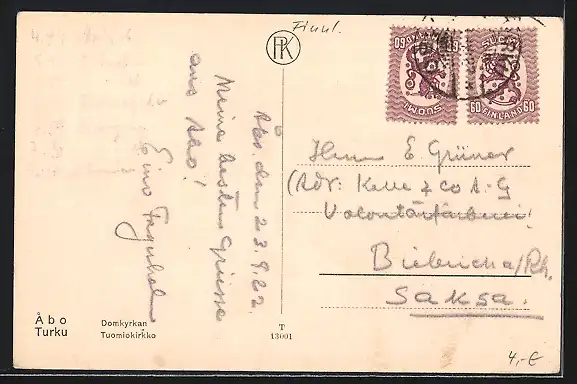 Finnl.
PK
SUOMI
60 60
FINLAND
SUOMI
60 60
FINLAND
Åbo, den 23.9.22.
Meine besten Grüsse
aus Åbo!
Eino Fagerholm
Herrn E. Grüner
(Adr: Kalle & Co A-G
Volontärfärberei
Biebrich a/Rh.
Saksa.
Åbo
Turku
Domkyrkan
Tuomiokirkko
T
13001
4,-€